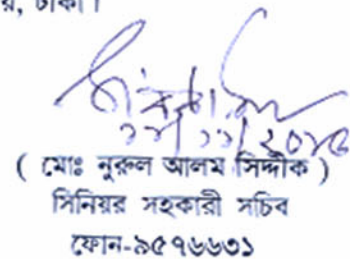 য়, ঢাকা।
( মোঃ নুরুল আলম সিদ্দীক )
সিনিয়র সহকারী সচিব
ফোন-৯৫৭৬৬৩১